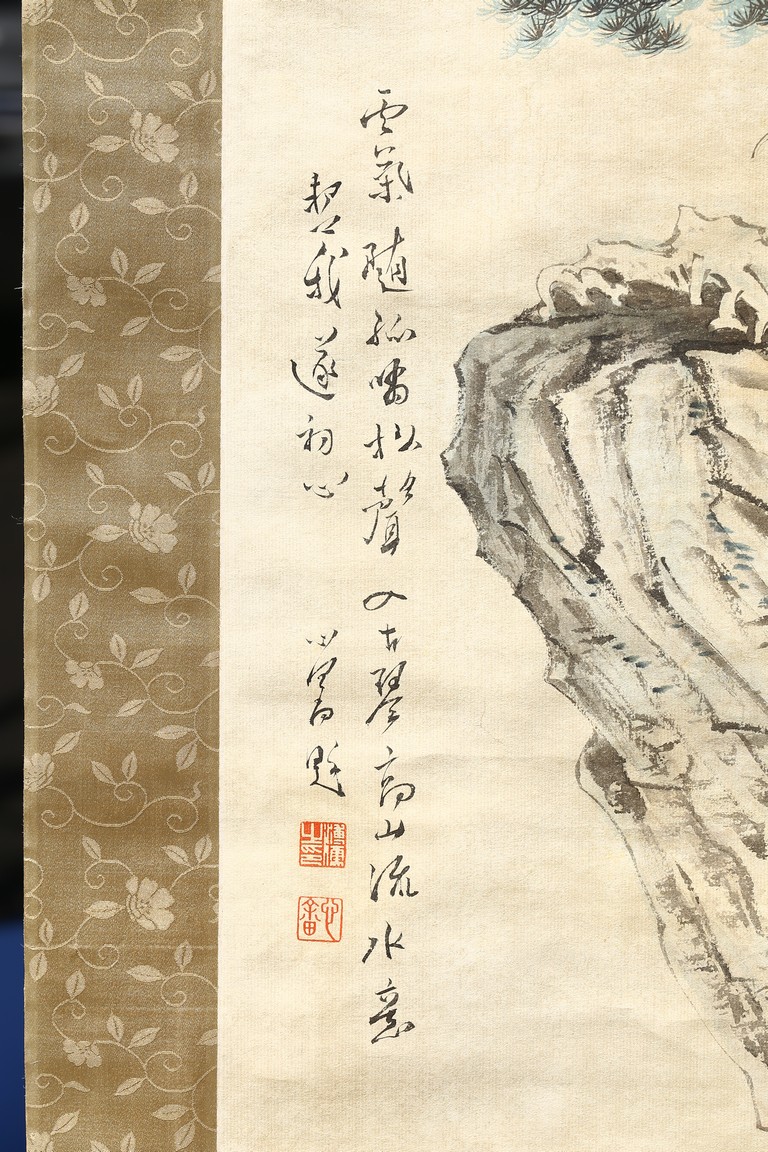 雲氣隨孤嘯松聲入古琴高山流水意
契我遂初心
心畬題
溥儒之印
心畬